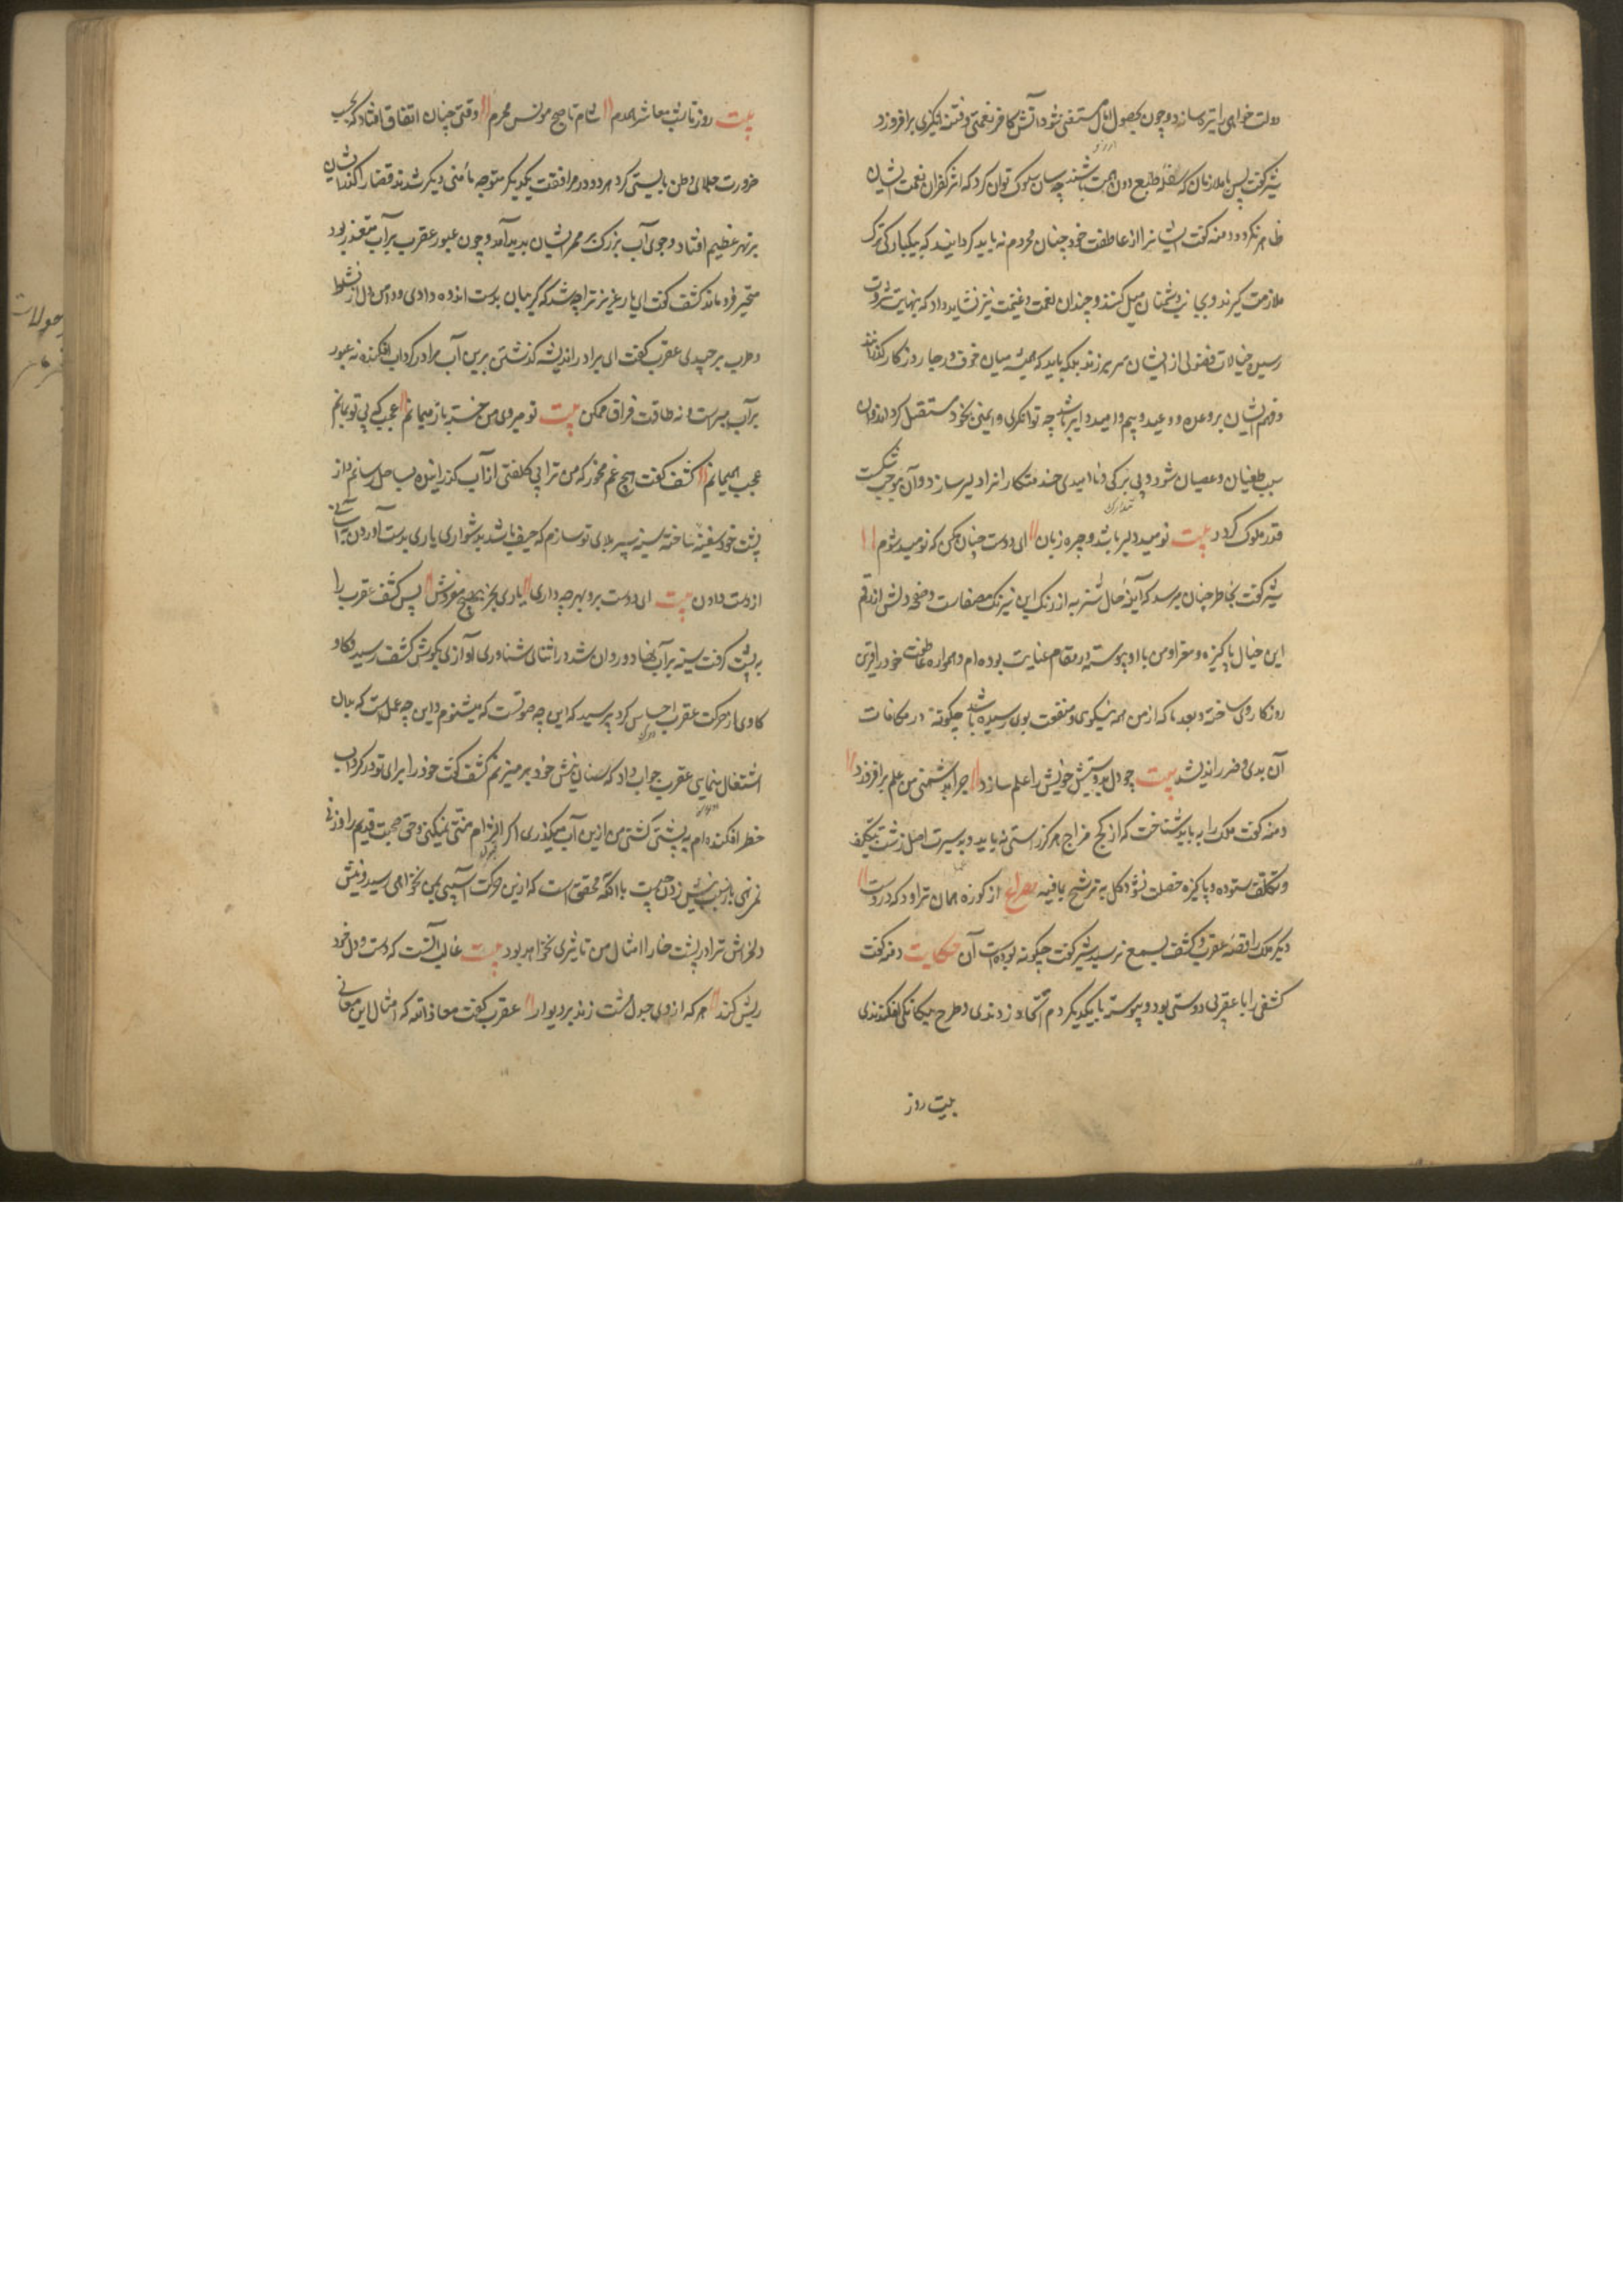 دولت خواهی را تیره سازد و چون بحصول امال مستغنی شود آتش کافر نعمتی و فتنه انگیزی برافروزد
شیر گفت پس با ملازمان که سفله طبع و دون همت باشند چه سان سلوک توان کرد که اثر کفران نعمت ایشان
ظاهر نگردد دمنه گفت ایشانرا از عاطفت خود چنان محروم نباید گردانید که بیکبارگی ترک
ملازمت گیرند و بجانب دشمنان میل کنند و چندان نعمت و غنیمت نیز نشاید داد که بنهایت ثروت
رسیده خیالات فضولی از ایشان سر برزند بلکه باید که همیشه میان خوف و رجا روزگار گذرانند
و مهم ایشان بر وعده و وعید و بیم و امید دایر باشد چه توانگری و ایمنی بخود مستقل گرداند و آن
سبب طغیان و عصیان شود و بی برگی و ناامیدی خدمتکار انرا دلیر سازد و آن موجب شکست
قدر ملوک گردد بیت نومید دلیر باشد و چیره زبان ای دوست چنان مکن که نومید شوم
شیر گفت بخاطر چنان میرسد که آینه حال شنزبه از زنگ این نیرنگ مصفاست و صفحه دلش از رقم
این خیال پاکیزه و معرا و من با او پیوسته در مقام عنایت بوده ام و همواره عاطفت خود را قرین
روزگار وی ساخته و بعد ما که از من همه نیکوی و منفعت بوی رسیده باشد چگونه در مکافات
آن بدی و ضرر اندیشد بیت چو دل مهر و پیش خویش را علم سازد چرا بدشمنی من علم برافرازد
دمنه گفت ملک را بباید شناخت که از کج مزاج هرگز راستی نیاید و بدسیرت اصل زشت بتکلیف
و تکلف ستوده و پاکیزه خصلت نشود کل اناء یترشح بما فیه مصراع از کوزه همان تراود که دروست
دیگر ملک را قصه عقرب و کشف بسمع نرسید شیر گفت چگونه بوده است آن حکایت دمنه گفت
کشفی را با عقربی دوستی بود و پیوسته با یکدیگر دم اتحاد زدندی و طرح یگانگی افکندندی
بیت روز
بیت روز تا شب معاشر و همدم شام تا صبح مونس و محرم وقتی چنان اتفاق افتاد که بحسب
ضرورت جلای وطن بایستی کرد هر دو در مرافقت یکدیگر متوجه مأمنی دیگر شدند قضا را گذر ایشان
بر نهر عظیم افتاد و جوی آب بزرگ بر ممر ایشان پدید آمد و چون عبور عقرب بر آب متعذر بود
متحیر فرو ماند کشف گفت ای یار عزیز ترا چه شد که گریبان بدست اندوه دادی و دامن دل از نشاط
و طرب برچیدی عقرب گفت ای برادر اندیشه گذشتن برین آب مرا در گرداب افکنده نه عبور
بر آب میسر است و نه طاقت فراق ممکن بیت تو میروی من خسته باز میمانم عجب که بی تو بمانم
عجب همیمانم کشف گفت هیچ غم مخور که من ترا بی کلفتی از آب گذرانیده بساحل رسانم و از
پشت خود سفینه ساخته سینه سپر بلای تو سازم که حیف باشد بدشواری یاری بدست آوردن و بآسانی
از دست دادن بیت ای دوست برو بهر چه داری یاری بخر و بهیچ مفروش پس کشف عقرب را
به پشت گرفت سینه بر آب نهاد و روان شد در اثنای شناوری آوازی بگوش کشف رسید و کاو
کاوی از حرکت عقرب احساس کرد پرسید که این چه صوتست که میشنوم و این چه عمل است که بدان
اشتغال مینمایی عقرب جواب داد که سنان نیش خود بر میزنم کشف گفت خود را برای تو در گرداب
خطر افکنده ام به پشتی کشتی من ازین آب میگذری اگر التزام منتی نمیکنی و حق صحبت قدیم را وزنی
نمی نهی باری سبب نیش زدن چیست با آنکه محقق است که ازین حرکت آسیبی بمن نخواهد رسید و نیش
دلخراش ترا در پشت خارا مثال من تاثیری نخواهد بود بیت غالب آنست که دست و دل خود
ریش کند هر که از روی جدل مشت زند بر دیوار عقرب گفت معاذ الله که امثال این معانی